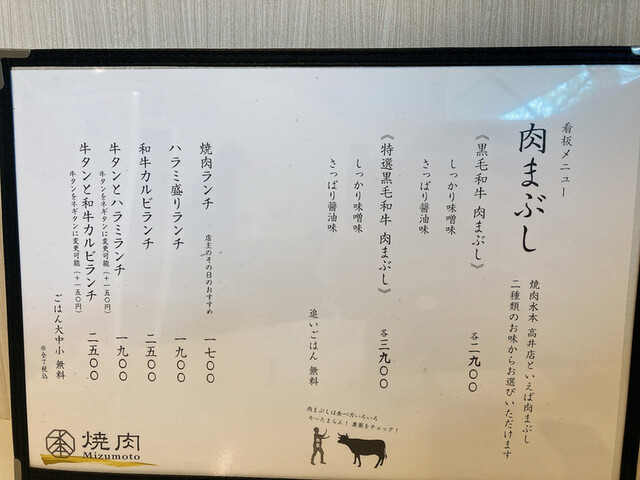 看板メニュー
肉まぶし
焼肉水本 高井店といえば肉まぶし
二種類のお味からお選びいただけます
《黒毛和牛 肉まぶし》 各 二九〇〇
しっかり味噌味
さっぱり醤油味
《特選黒毛和牛 肉まぶし》 各 三九〇〇
しっかり味噌味
さっぱり醤油味
追いごはん 無料
肉まぶしは食べ方いろいろ
モ〜たまらん！ 裏面をチェック！
焼肉ランチ 店主のその日のおすすめ 一七〇〇
ハラミ盛りランチ 一九〇〇
和牛カルビランチ 二五〇〇
牛タンとハラミランチ 一九〇〇
牛タンをネギタンに変更可能（＋一五〇円）
牛タンと和牛カルビランチ 二五〇〇
牛タンをネギタンに変更可能（＋一五〇円）
ごはん大中小 無料
※全て税込
本 焼肉
Mizumoto